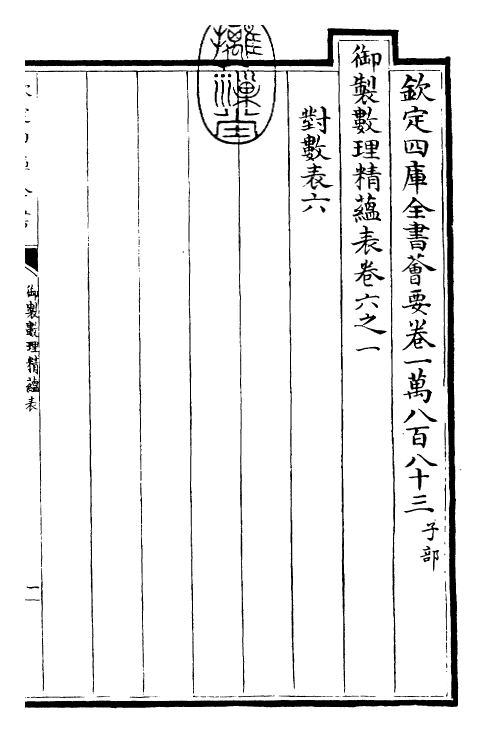 欽定四庫全書薈要卷一萬八百八十三 子部
御製數理精蘊表卷六之一
對數表六
御製數理精蘊表
一